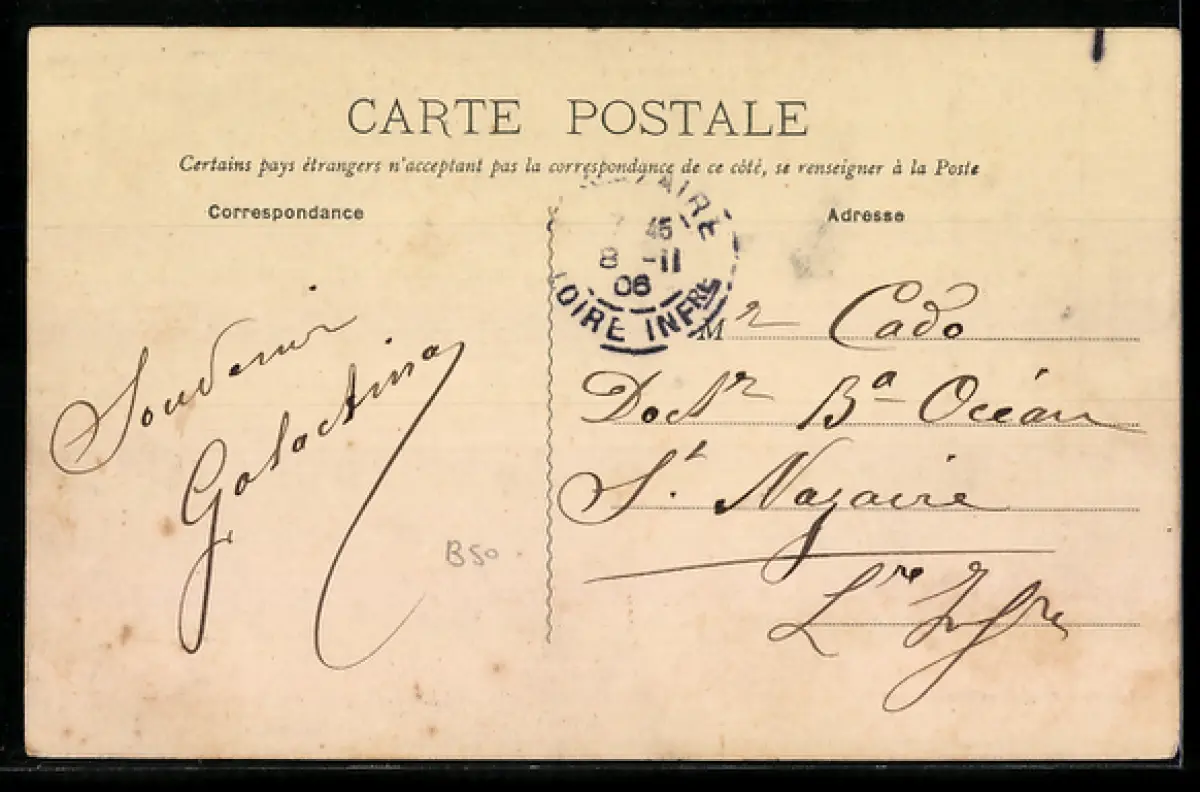 CARTE POSTALE
Certains pays étrangers n'acceptant pas la correspondance de ce côté, se renseigner à la Poste
Correspondance
Adresse
AIRE
45
8 -11
06
LOIRE INFRE
Souvenir
Galactina
B50
Mr Cado
Doctr Ba Océan
St. Nazaire
Lre Infre